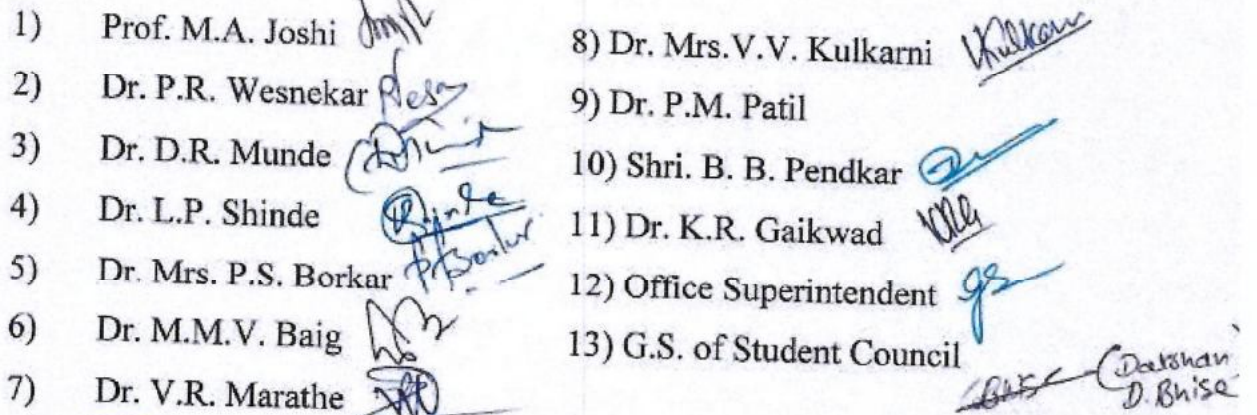 1) Prof. M.A. Joshi
2) Dr. P.R. Wesnekar
3) Dr. D.R. Munde
4) Dr. L.P. Shinde
5) Dr. Mrs. P.S. Borkar PSBorkar
6) Dr. M.M.V. Baig
7) Dr. V.R. Marathe
8) Dr. Mrs.V.V. Kulkarni VKulkarni
9) Dr. P.M. Patil
10) Shri. B. B. Pendkar
11) Dr. K.R. Gaikwad
12) Office Superintendent
13) G.S. of Student Council
(Darshan
D. Bhise